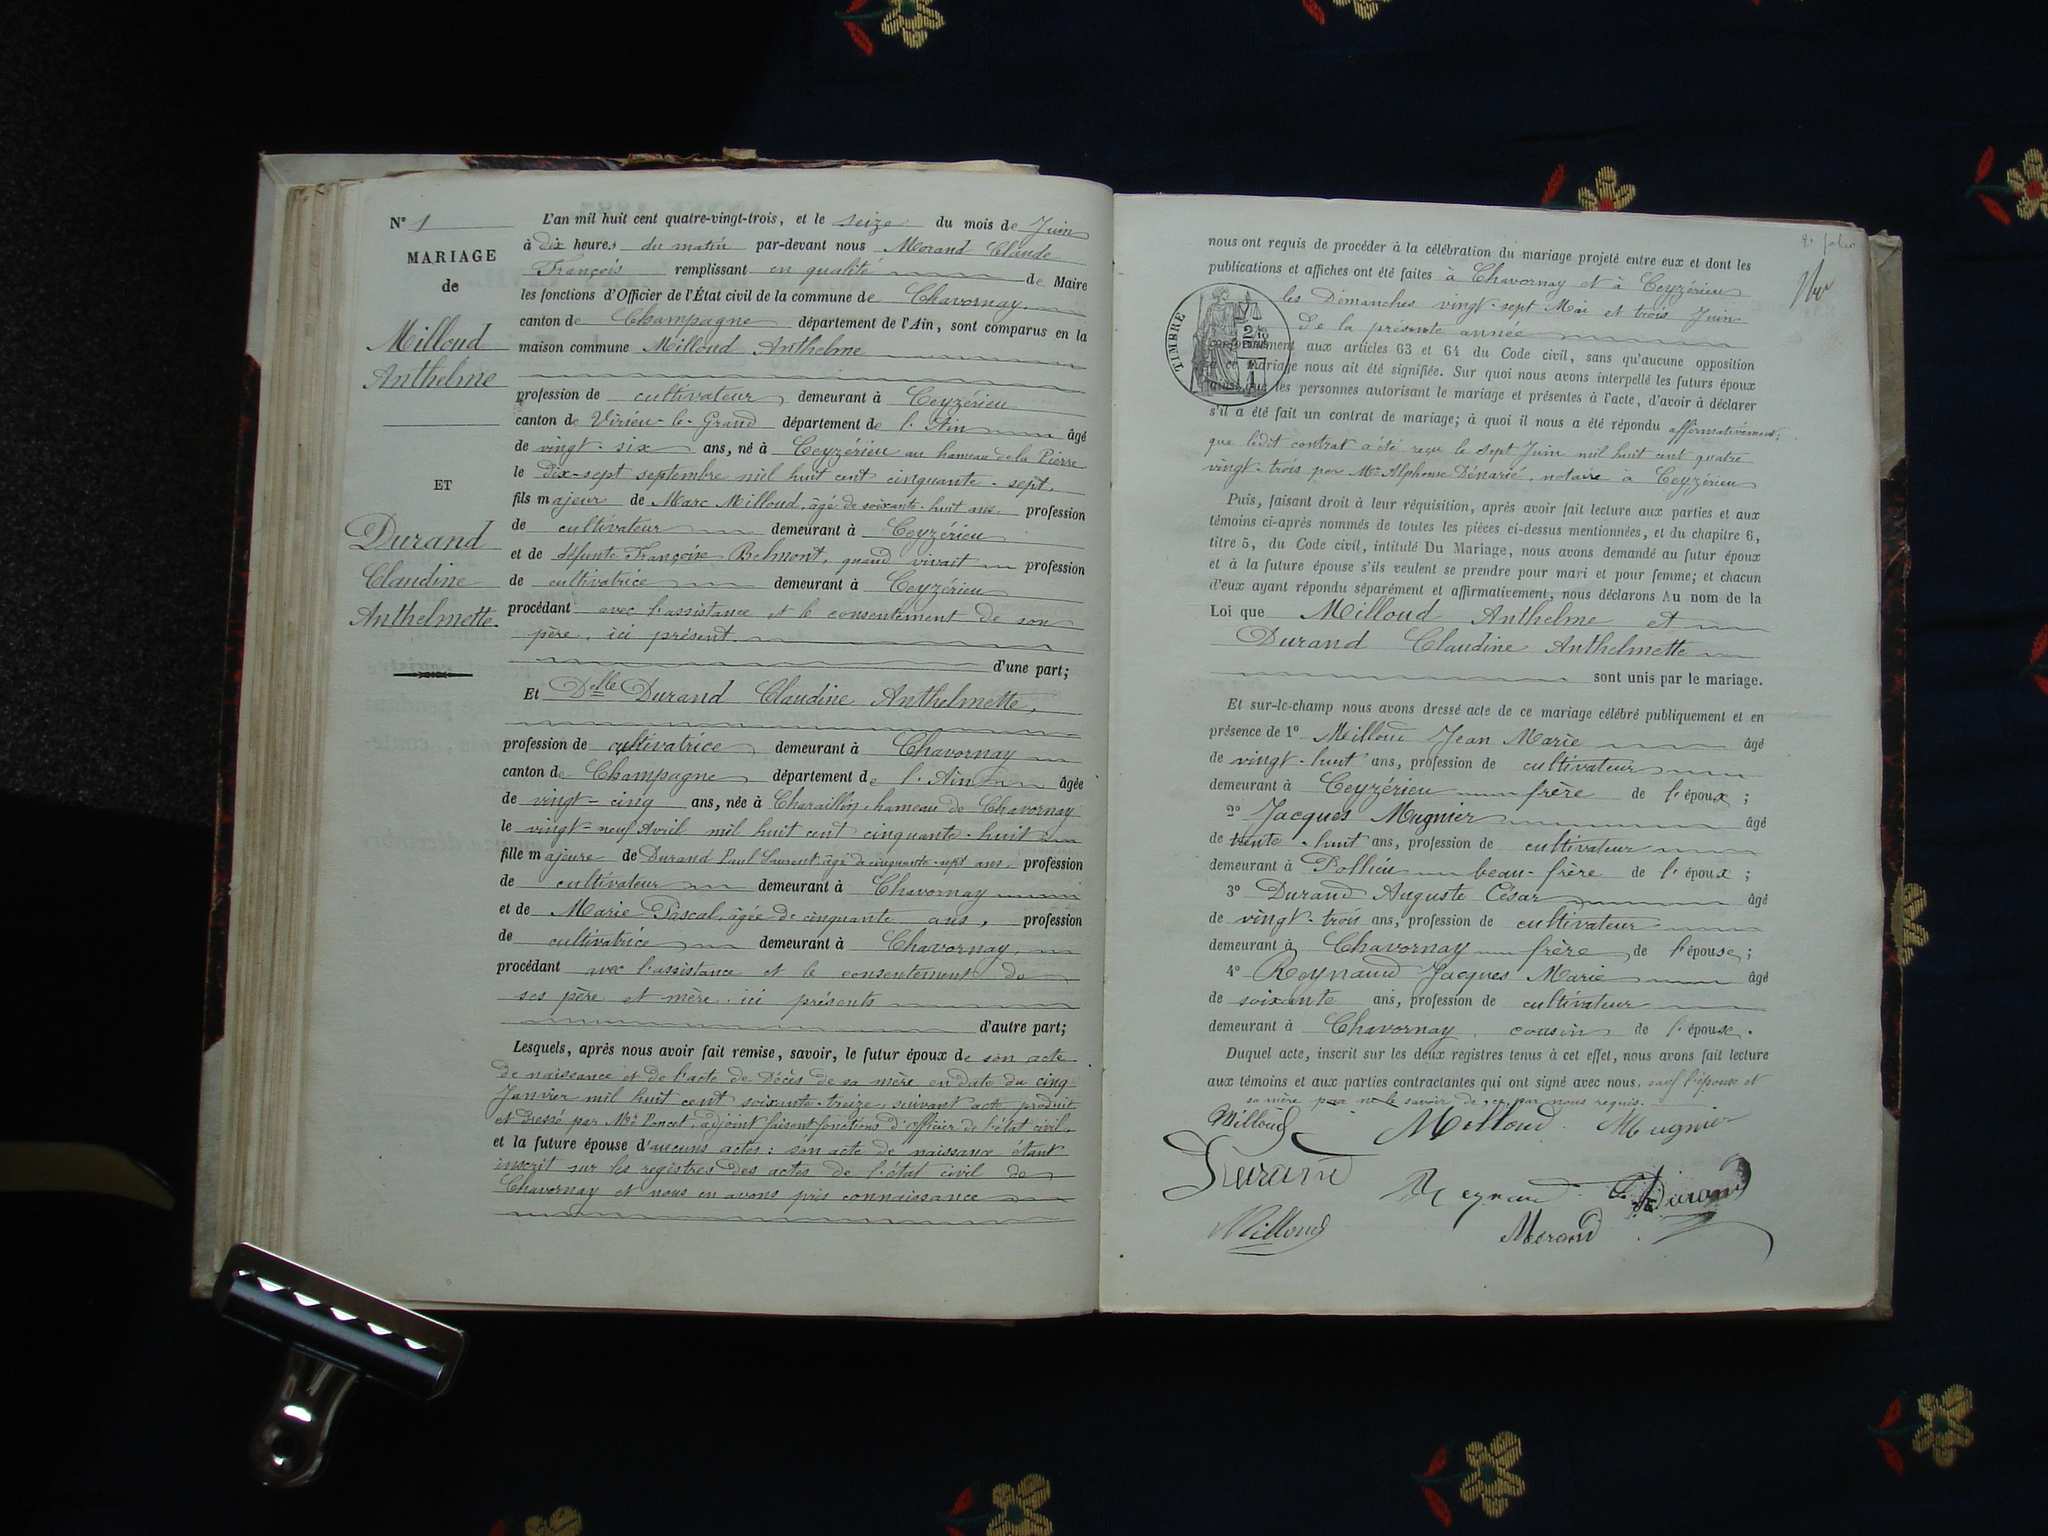 N° 1
MARIAGE
de
Milloud
Anthelme
ET
Durand
Claudine
Anthelmette.
L'an mil huit cent quatre-vingt-trois, et le seize du mois de Juin
à dix heures du matin par-devant nous Morand Claude
François remplissant en qualité de Maire
les fonctions d'Officier de l'État civil de la commune de Chavornay,
canton de Champagne département de l'Ain, sont comparus en la
maison commune Milloud Anthelme
profession de cultivateur demeurant à Ceyzérieu
canton de Virieu-le-Grand département de l'Ain âgé
de vingt-six ans, né à Ceyzérieu au hameau de la Pierre
le dix-sept septembre mil huit cent cinquante-sept,
fils majeur de Marc Milloud, âgé de soixante-huit ans, profession
de cultivateur demeurant à Ceyzérieu
et de défunte Françoise Belmont, quand vivait profession
de cultivatrice demeurant à Ceyzérieu
procédant avec l'assistance et le consentement de son
père, ici présent
d'une part;
Et Delle Durand Claudine Anthelmette,
profession de cultivatrice demeurant à Chavornay
canton de Champagne département de l'Ain âgée
de vingt-cinq ans, née à Charaillin, hameau de Chavornay
le vingt-neuf Avril mil huit cent cinquante-huit
fille majeure de Durand Paul Laurent, âgé de cinquante-sept ans, profession
de cultivateur demeurant à Chavornay
et de Marie Pascal, âgée de cinquante ans, profession
de cultivatrice demeurant à Chavornay,
procédant avec l'assistance et le consentement de
ses père et mère, ici présents
d'autre part;
Lesquels, après nous avoir fait remise, savoir, le futur époux de son acte
de naissance et de l'acte de Décès de sa mère en date du cinq
Janvier mil huit cent soixante-treize, suivant acte produit
et dressé par Mr Poncet, adjoint faisant fonctions d'officier de l'état civil,
et la future épouse d'aucuns actes: son acte de naissance étant
inscrit sur les registres des actes de l'état civil de
Chavornay et nous en avons pris connaissance
2e folio
nous ont requis de procéder à la célébration du mariage projeté entre eux et dont les
publications et affiches ont été faites à Chavornay et à Ceyzérieu
les Dimanches vingt-sept Mai et trois Juin
de la présente année
TIMBRE
conformément aux articles 63 et 64 du Code civil, sans qu'aucune opposition
à ce mariage nous ait été signifiée. Sur quoi nous avons interpellé les futurs époux
ainsi que les personnes autorisant le mariage et présentes à l'acte, d'avoir à déclarer
s'il a été fait un contrat de mariage; à quoi il nous a été répondu affirmativement;
que ledit contrat a été reçu le sept Juin mil huit cent quatre
vingt-trois par Me Alphonse Dénarié, notaire à Ceyzérieu
Puis, faisant droit à leur réquisition, après avoir fait lecture aux parties et aux
témoins ci-après nommés de toutes les pièces ci-dessus mentionnées, et du chapitre 6,
titre 5, du Code civil, intitulé Du Mariage, nous avons demandé au futur époux
et à la future épouse s'ils veulent se prendre pour mari et pour femme; et chacun
d'eux ayant répondu séparément et affirmativement, nous déclarons Au nom de la
Loi que Milloud Anthelme et
Durand Claudine Anthelmette
sont unis par le mariage.
Et sur-le-champ nous avons dressé acte de ce mariage célébré publiquement et en
présence de 1° Milloud Jean Marie âgé
de vingt-huit ans, profession de cultivateur
demeurant à Ceyzérieu frère de l'époux;
2° Jacques Mugnier âgé
de trente-huit ans, profession de cultivateur
demeurant à Pollieu beau-frère de l'époux;
3° Durand Auguste César âgé
de vingt-trois ans, profession de cultivateur
demeurant à Chavornay frère de l'épouse;
4° Reynaud Jacques Marie âgé
de soixante ans, profession de cultivateur
demeurant à Chavornay, cousin de l'épouse.
Duquel acte, inscrit sur les deux registres tenus à cet effet, nous avons fait lecture
aux témoins et aux parties contractantes qui ont signé avec nous, sauf l'épouse et
sa mère pour ne le savoir de ce par nous requis.
Milloud Milloud Mugnier
Durand Reynaud Durand
Milloud Morand